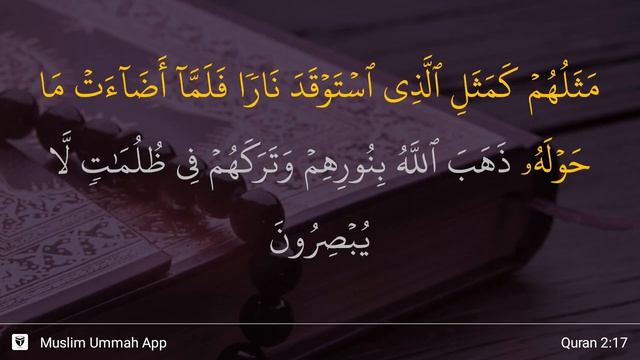 مَثَلُهُمْ كَمَثَلِ ٱلَّذِى ٱسْتَوْقَدَ نَارًا فَلَمَّآ أَضَآءَتْ مَا
حَوْلَهُۥ ذَهَبَ ٱللَّهُ بِنُورِهِمْ وَتَرَكَهُمْ فِى ظُلُمَـٰتٍ لَّا
يُبْصِرُونَ
Muslim Ummah App
Quran 2:17